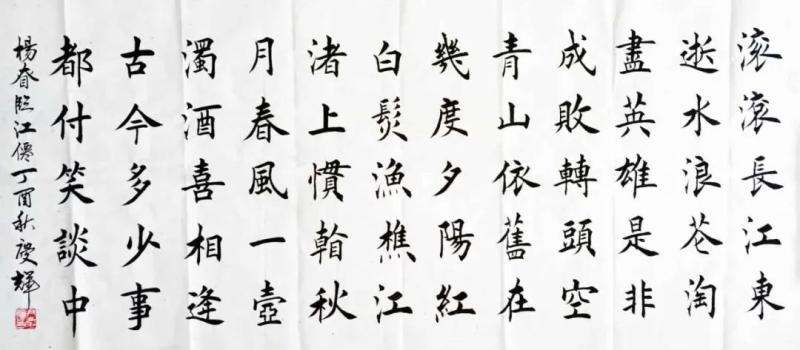 滚滚長江東
逝水浪花淘
盡英雄是非
成敗轉頭空
青山依舊在
幾度夕陽紅
白髮漁樵江
渚上慣看秋
月春風一壺
濁酒喜相逢
古今多少事
都付笑談中
楊眘臨江僊丁酉秋慶輝